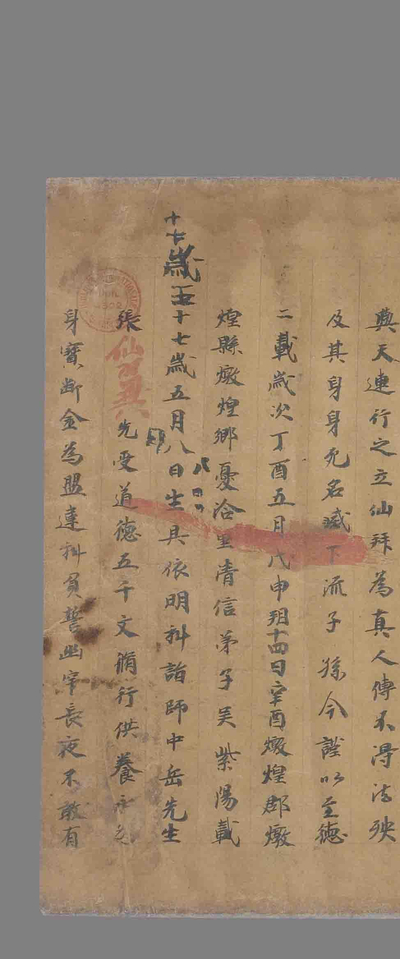 典天連行之立仙拜為真人傳不得法殃
及其身身死名滅下流子孫今謹以至德
二載歲次丁酉五月戊申朔十四日辛酉燉煌郡燉
煌縣燉煌鄉憂洽里清信弟子吴紫陽載
十七歲五十七歲五月八日生具依明科詣師中岳先生
八日
張仙翼先受道德五千文脩行供養永為
身寳斷金為盟違科負誓幽牢長夜不敢有